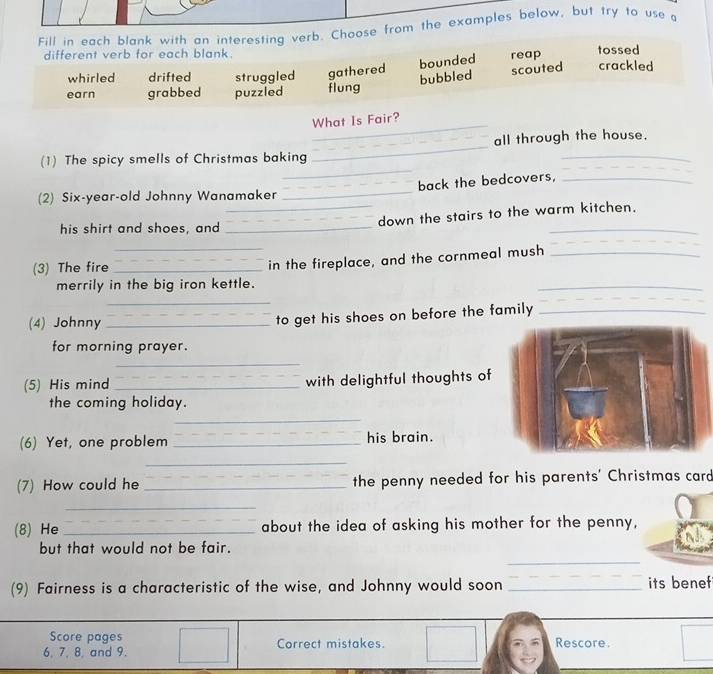 Fill in each blank with an interesting verb. Choose from the examples below, but try to use a
different verb for each blank.
whirled drifted struggled gathered bounded reap tossed
earn grabbed puzzled flung bubbled scouted crackled
What Is Fair?
(1) The spicy smells of Christmas baking all through the house.
(2) Six-year-old Johnny Wanamaker back the bedcovers,
his shirt and shoes, and down the stairs to the warm kitchen.
(3) The fire in the fireplace, and the cornmeal mush
merrily in the big iron kettle.
(4) Johnny to get his shoes on before the family
for morning prayer.
(5) His mind with delightful thoughts of
the coming holiday.
(6) Yet, one problem his brain.
(7) How could he the penny needed for his parents' Christmas card
(8) He about the idea of asking his mother for the penny,
but that would not be fair.
(9) Fairness is a characteristic of the wise, and Johnny would soon its benef
Score pages
6, 7, 8, and 9.
Correct mistakes.
Rescore.